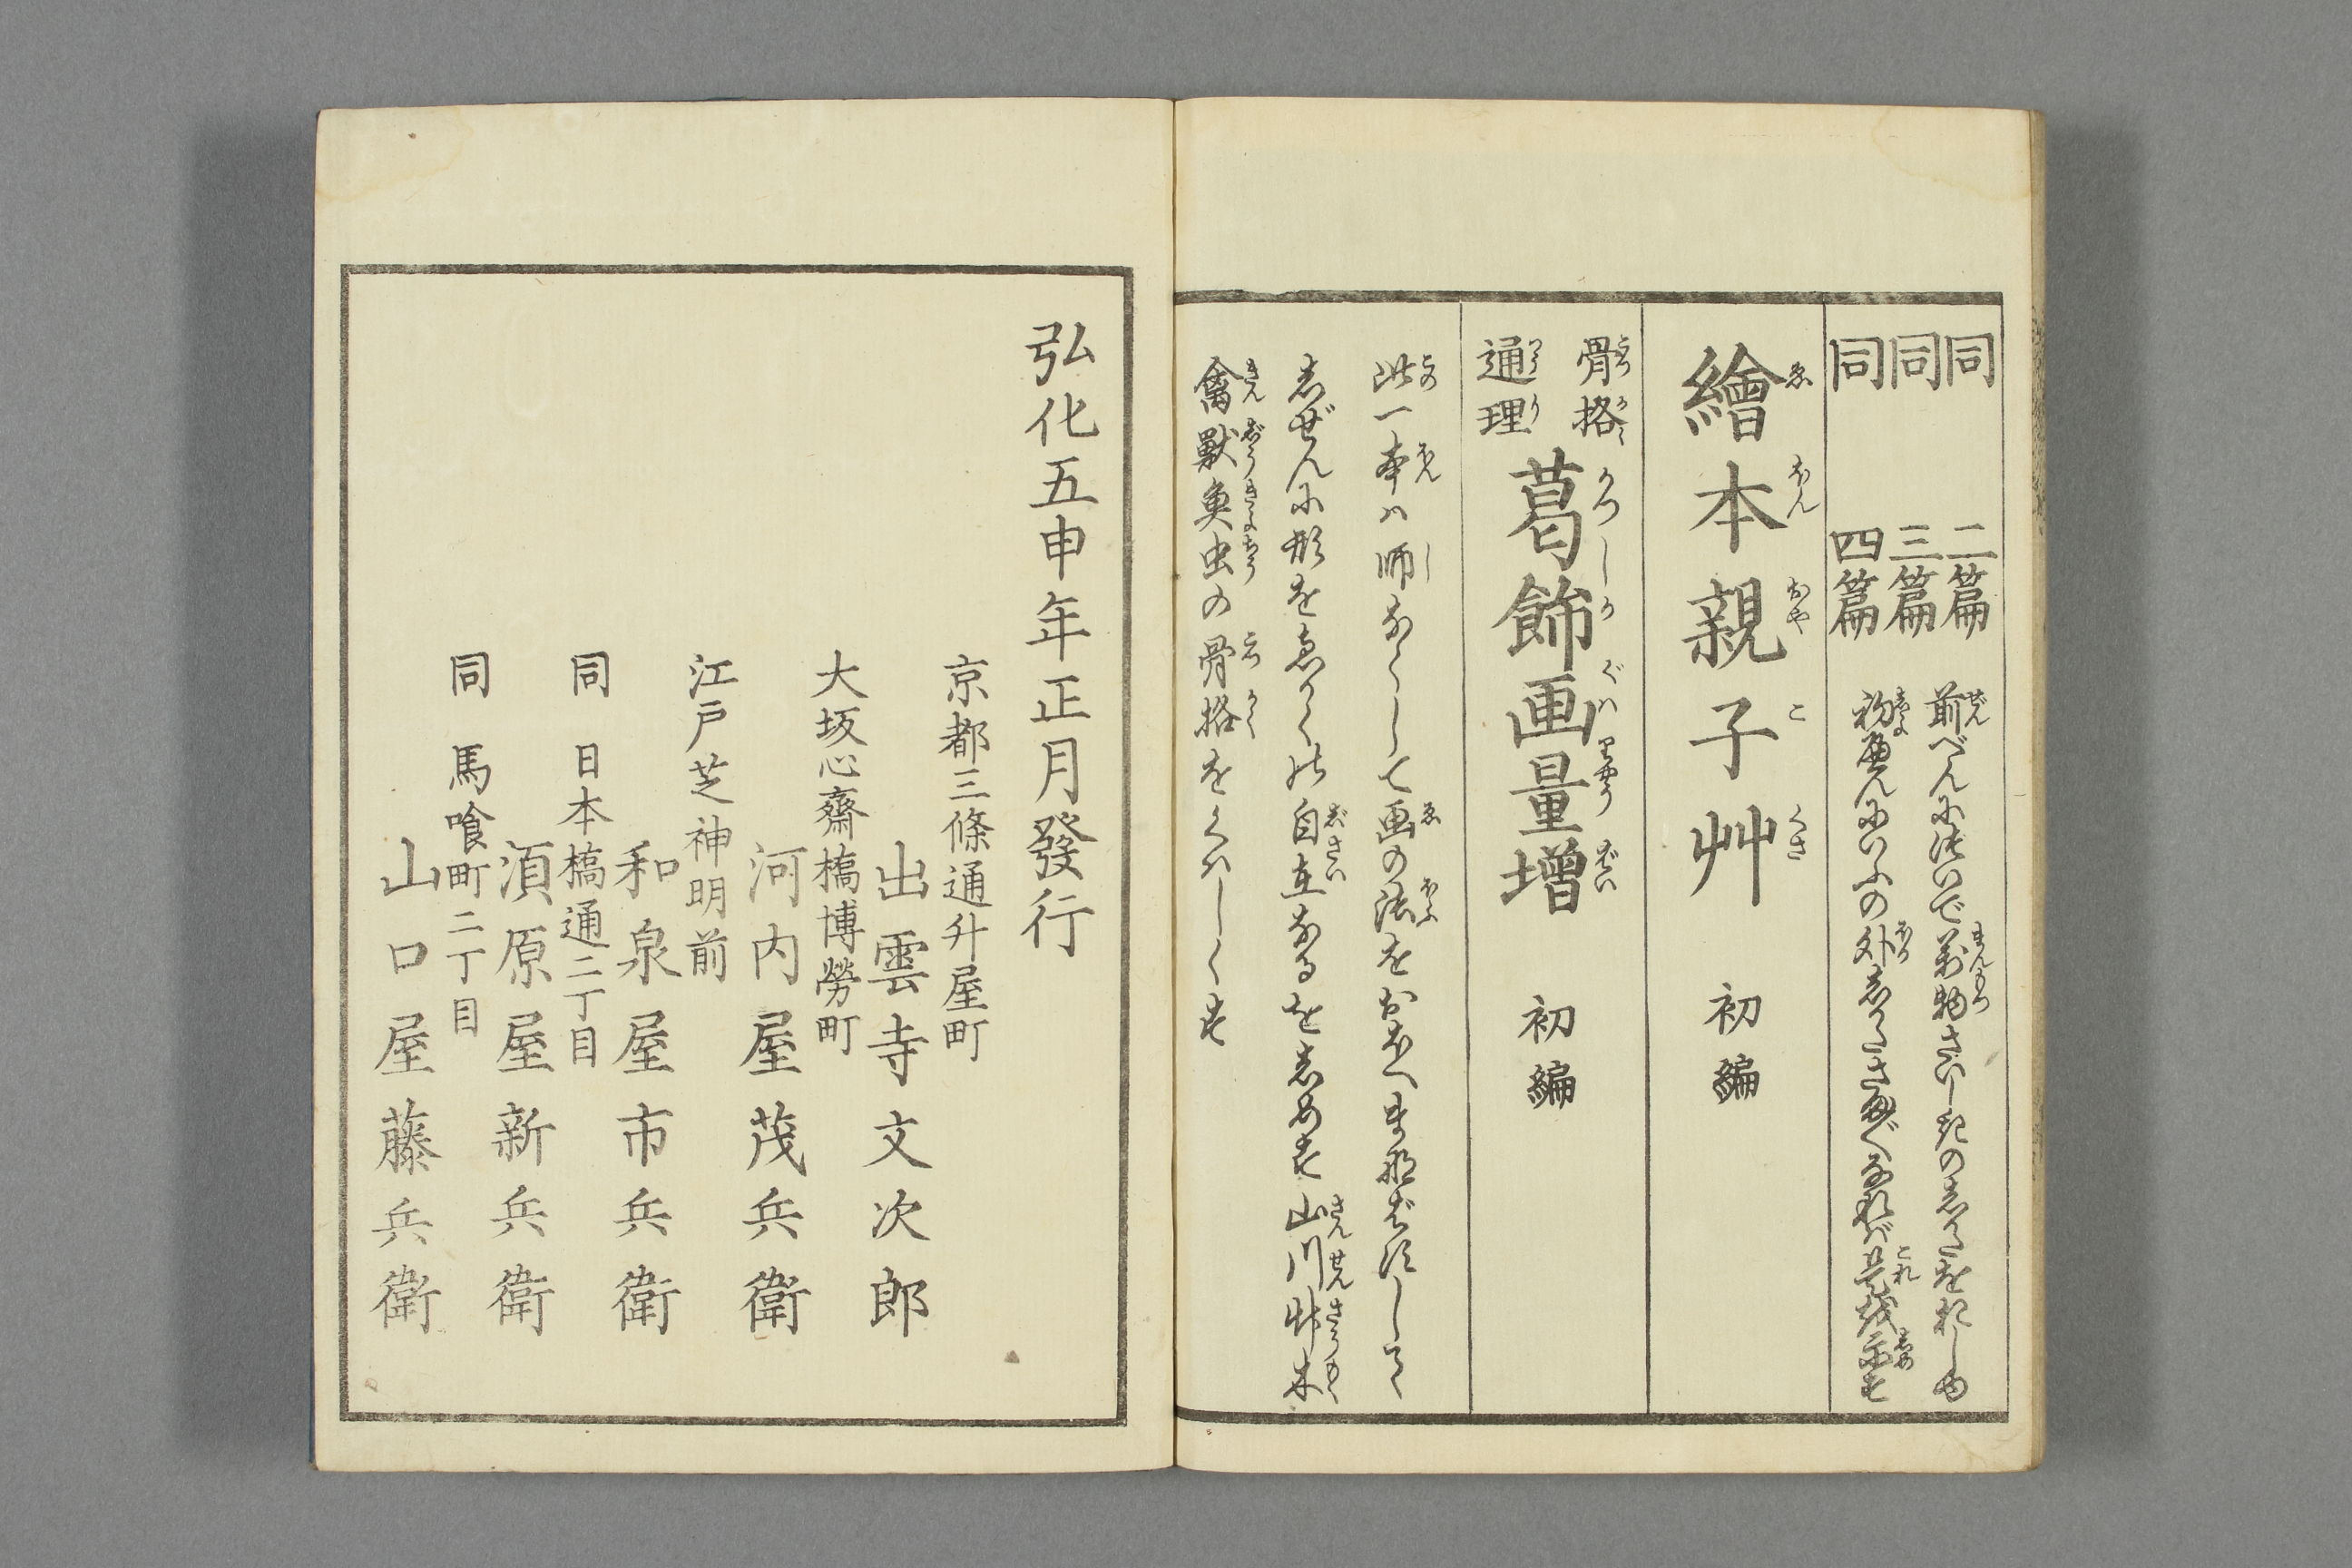 同 二篇
同 三篇
同 四篇
前べんに洩いで萬物さいしきのしかたを記し由
初へんにいふの外しかたさま〴〵なれバ是を示す
繪本親子艸 初編
骨格
通理
葛飾画量増 初編
此一本ハ師なくして画の法をおぼへまなばずして
しぜんに形をゑがく的自在なるをしめす山川艸木
禽獣魚虫の骨格をくハしくす
弘化五申年正月發行
京都三條通升屋町
出雲寺文次郎
大坂心齋橋博勞町
河内屋茂兵衛
江戸芝神明前
和泉屋市兵衛
同 日本橋通二丁目
須原屋新兵衛
同 馬喰町二丁目
山口屋藤兵衛